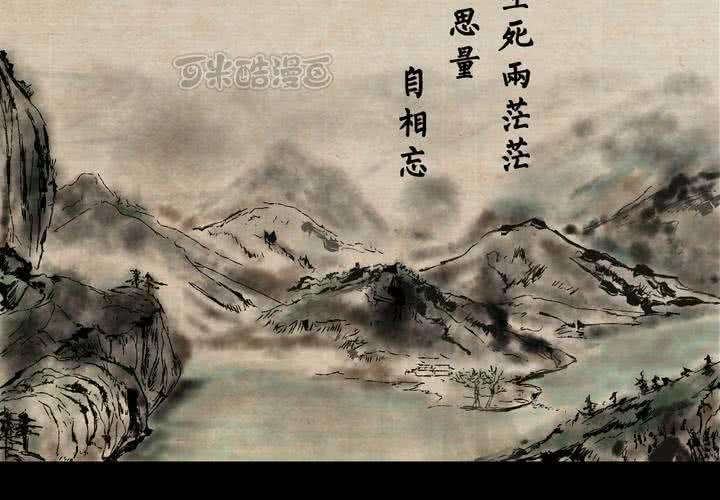 生死兩茫茫
思量
自相忘
可米酷漫画